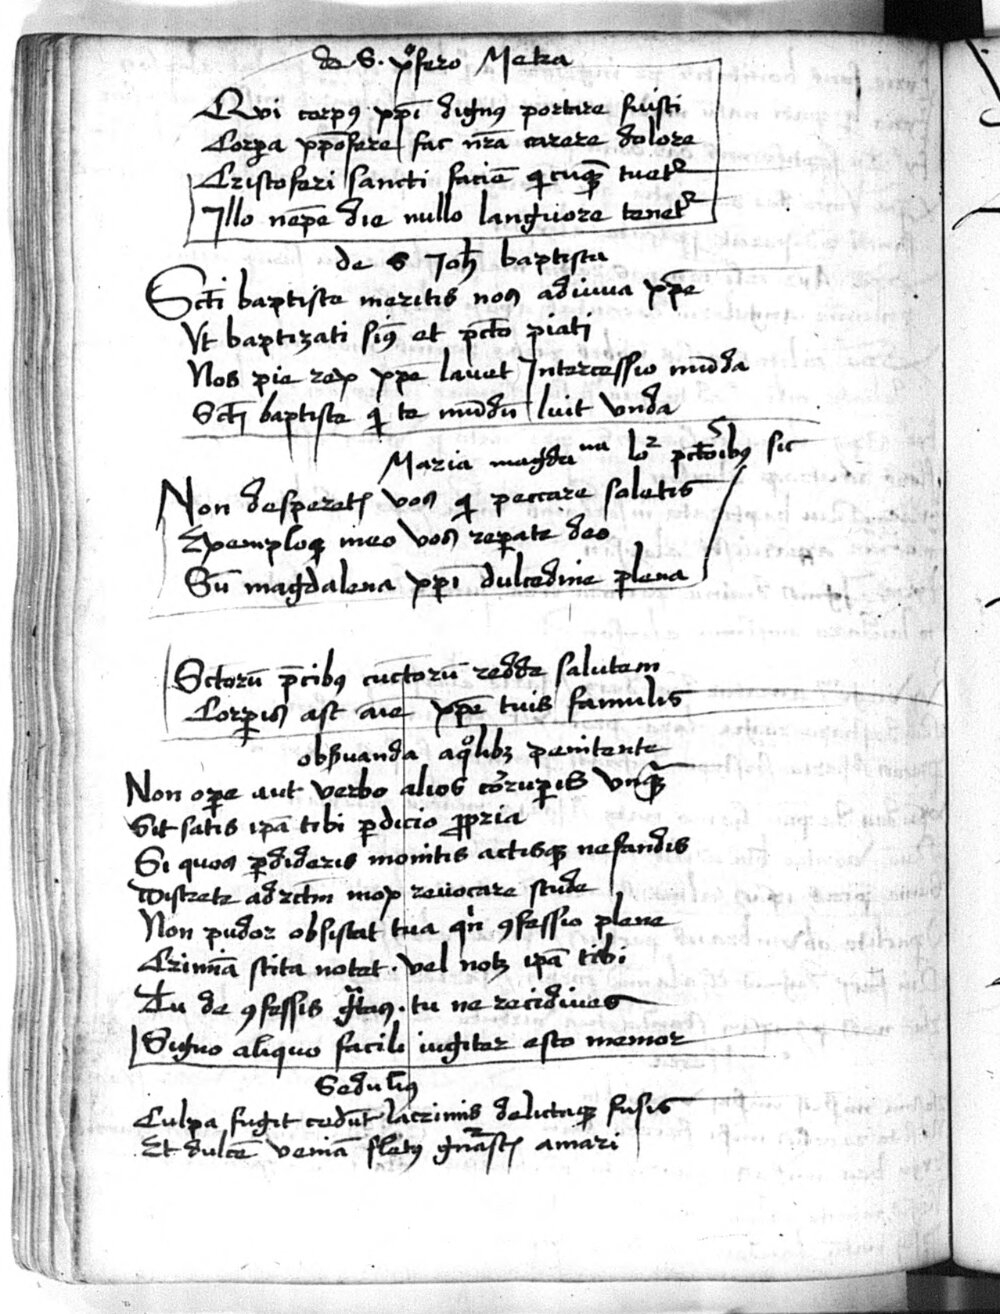 de .S. xpofero Metra
Qui corpus xpi dignus portare fuisti
Corpora xpofere fac nra carere dolore
Cristoferi sancti faciem quicumque tuetur
Illo nempe die nullo languore tenetur
de S Joh baptista
Scti baptiste meritis nos adiuua xpe
Ut baptizati simus et pccto piati
Nos pie rex xpe lauet Intercessio munda
Scti baptiste qui te mundum luit unda
Maria magdalena loquitur pcctoribus sic
Non desperetis vos qui peccare soletis
Exemploque meo vos reparate deo
Sum magdalena xpi dulcedine plena
Sctorum precibus cunctorum redde salutem
Corporis ast aie xpe tuis famulis
obseruanda a quolibet penitente
Non opere aut verbo alios corruperis unquam
Sit satis ipa tibi perdicio propria
Si quos perdideris monitis actisque nefandis
Distrete ad rectum mox reuocare stude
Non pudor obsistat tua quin confessio plene
Crimina scita notet . vel nota ipa tibi
Tu de confessis . tu ne recidiues
Signo aliquo facili iugiter esto memor
Sedulius
Culpa fugit cedunt lacrimis delictaque fusis
Et dulcem veniam fletus amari